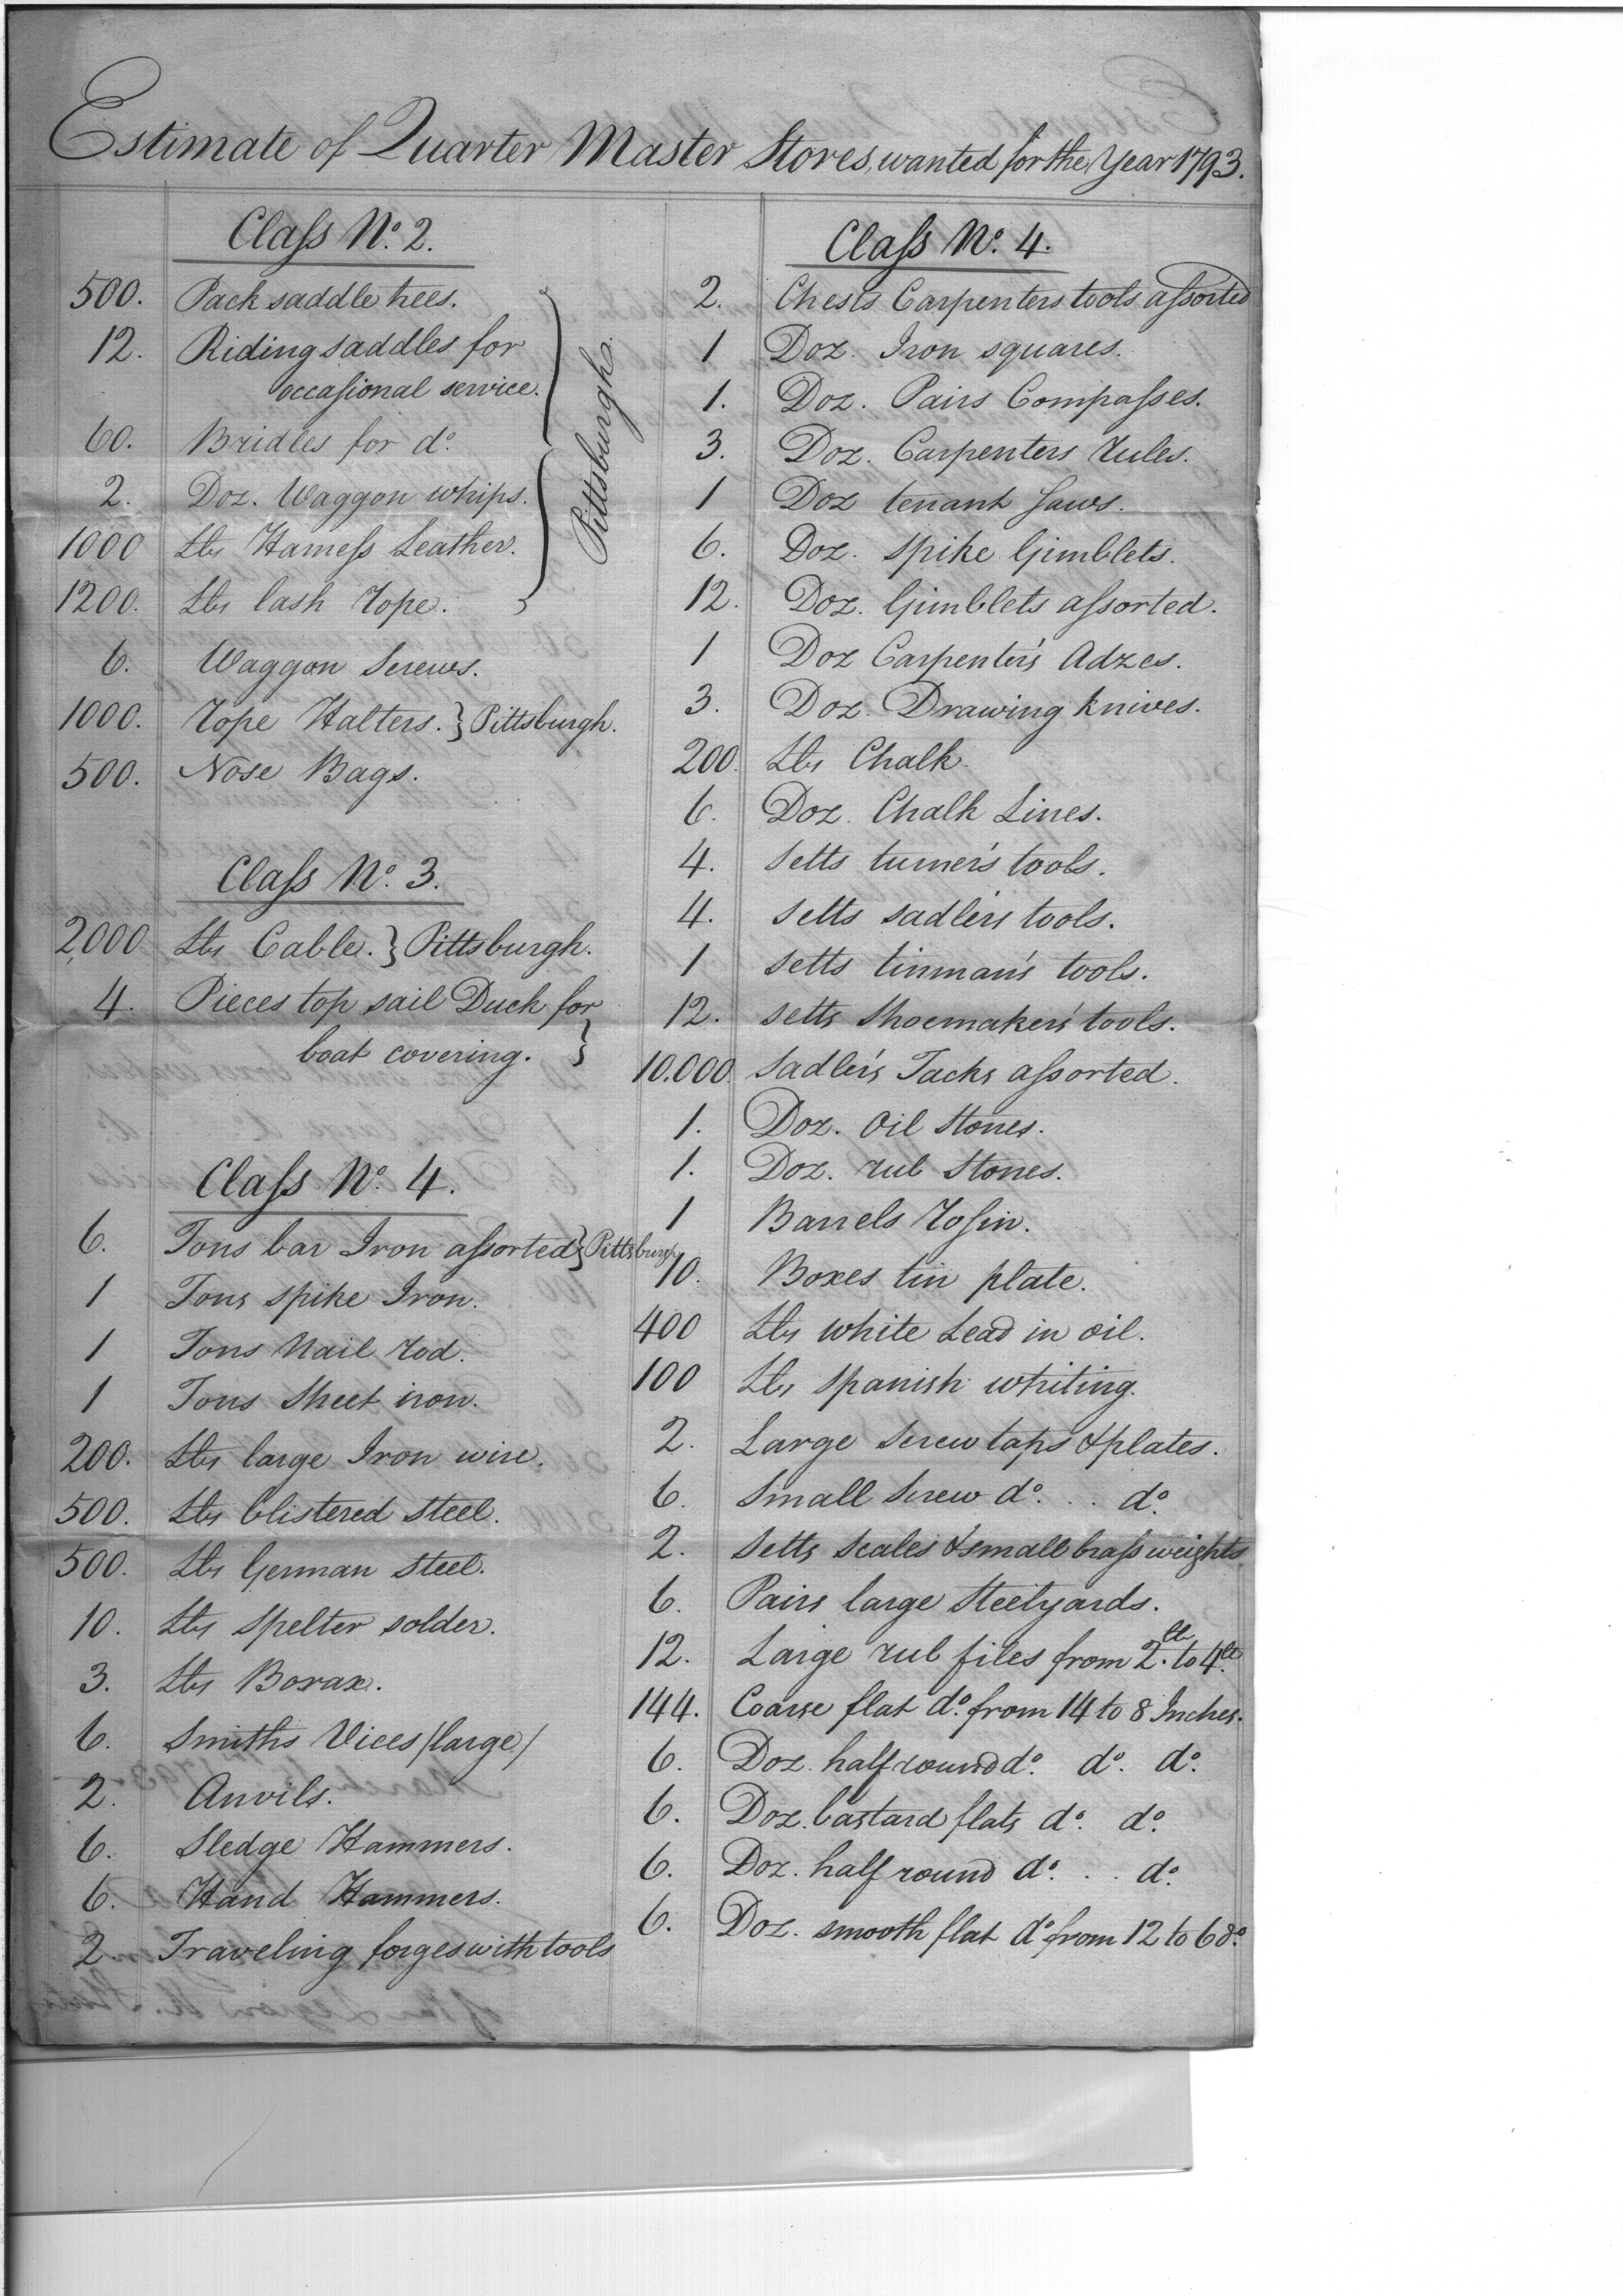 Estimate of Quarter Master Stores, wanted for the Year 1793.
Claſs Nº. 2.
500. Pack saddle trees.
12. Riding saddles for
occaſional service.
60. Bridles for dº.
2. Doz. Waggon whips.
1000 Lbs Harneſs Leather.
1200. Lbs lash rope.
Pittsburgh.
6. Waggon Screws.
1000. Rope Halters. } Pittsburgh.
500. Nose Bags.
Claſs Nº. 3.
2,000 Lbs Cable. } Pittsburgh.
4. Pieces top sail Duck for
boat covering. }
Claſs Nº. 4.
6. Tons bar Iron aſsorted } Pittsburgh
1 Tons spike Iron.
1 Tons Nail rod.
1 Tons Sheet iron.
200. Lbs large Iron wire.
500. Lbs blistered Steel.
500. Lbs German Steel.
10. Lbs Spelter solder.
3. Lbs Borax.
6. Smiths Vices /large/
2. Anvils.
6. Sledge Hammers.
6. Hand Hammers.
2. Traveling forges with tools
Claſs Nº. 4.
2. Chests Carpenters tools aſsorted
1 Doz. Iron squares.
1. Doz. Pairs Compaſses.
3. Doz. Carpenters rules.
1 Doz tenant Saws.
6. Doz. Spike Gimblets.
12. Doz. Gimblets aſsorted.
1 Doz Carpenter's Adzes.
3. Doz. Drawing knives.
200. Lbs Chalk.
6. Doz. Chalk Lines.
4. Setts turner's tools.
4. Setts sadler's tools.
1 Setts tinman's tools.
12. Setts Shoemaker's tools.
10.000. Sadler's Tacks aſsorted.
1. Doz. Oil Stones.
1. Doz. rub Stones.
1 Barrels Roſin.
10. Boxes tin plate.
400 Lbs white Lead in oil.
100 Lbs Spanish whiting.
2. Large Screw taps & plates.
6. Small Screw dº. . . dº.
2. Setts Scales & small braſs weights
6. Pairs large Steelyards.
12. Large rub files from 2.lb to 4lb.
144. Coarse flat dº. from 14 to 8 Inches.
6. Doz. half round dº. dº. dº.
6. Doz. bastard flats dº. dº.
6. Doz. half round dº. . . dº.
6. Doz. smooth flat dº from 12 to 6 dº.